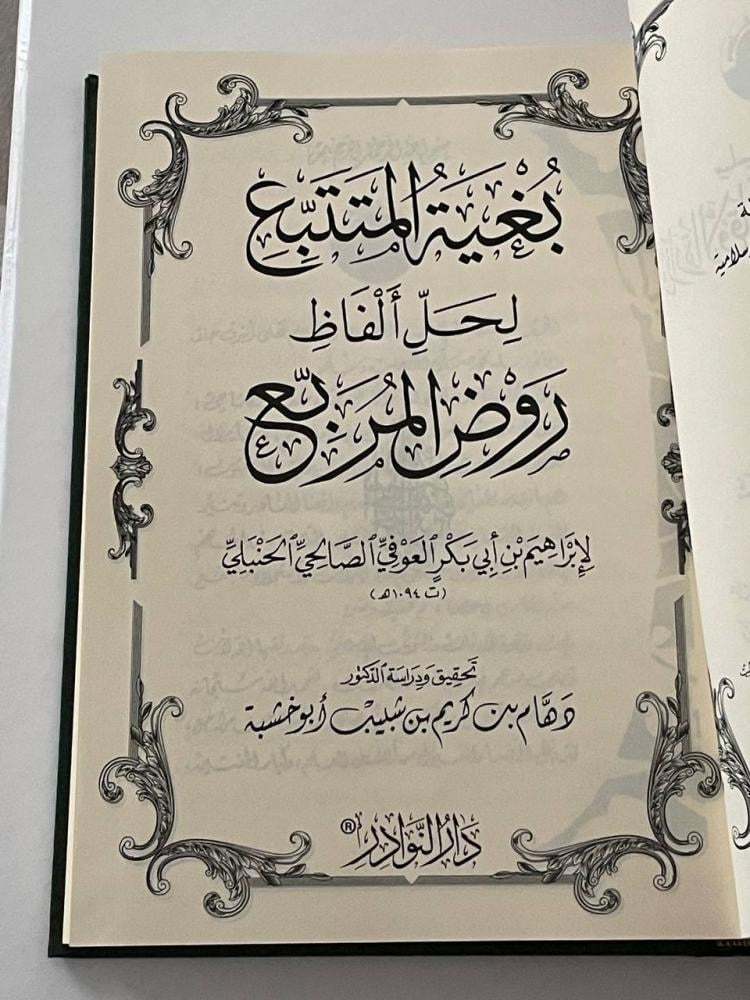 بُغْيَةُ المُتَتَبِّع
لِحَلِّ أَلْفَاظِ
رَوْضِ المُرَبِّع
لِإِبْرَاهِيمَ بْنِ أَبِي بَكْرٍ العَوْفِيِّ الصَّالِحِيِّ الحَنْبَلِيِّ
(ت ١٠٩٤ هـ)
تَحْقِيق وَدِرَاسَة الدّكتور
دهَّام بن كريم بن شبيب أبو خشبة
دَارُ النَّوَادِرِ ®